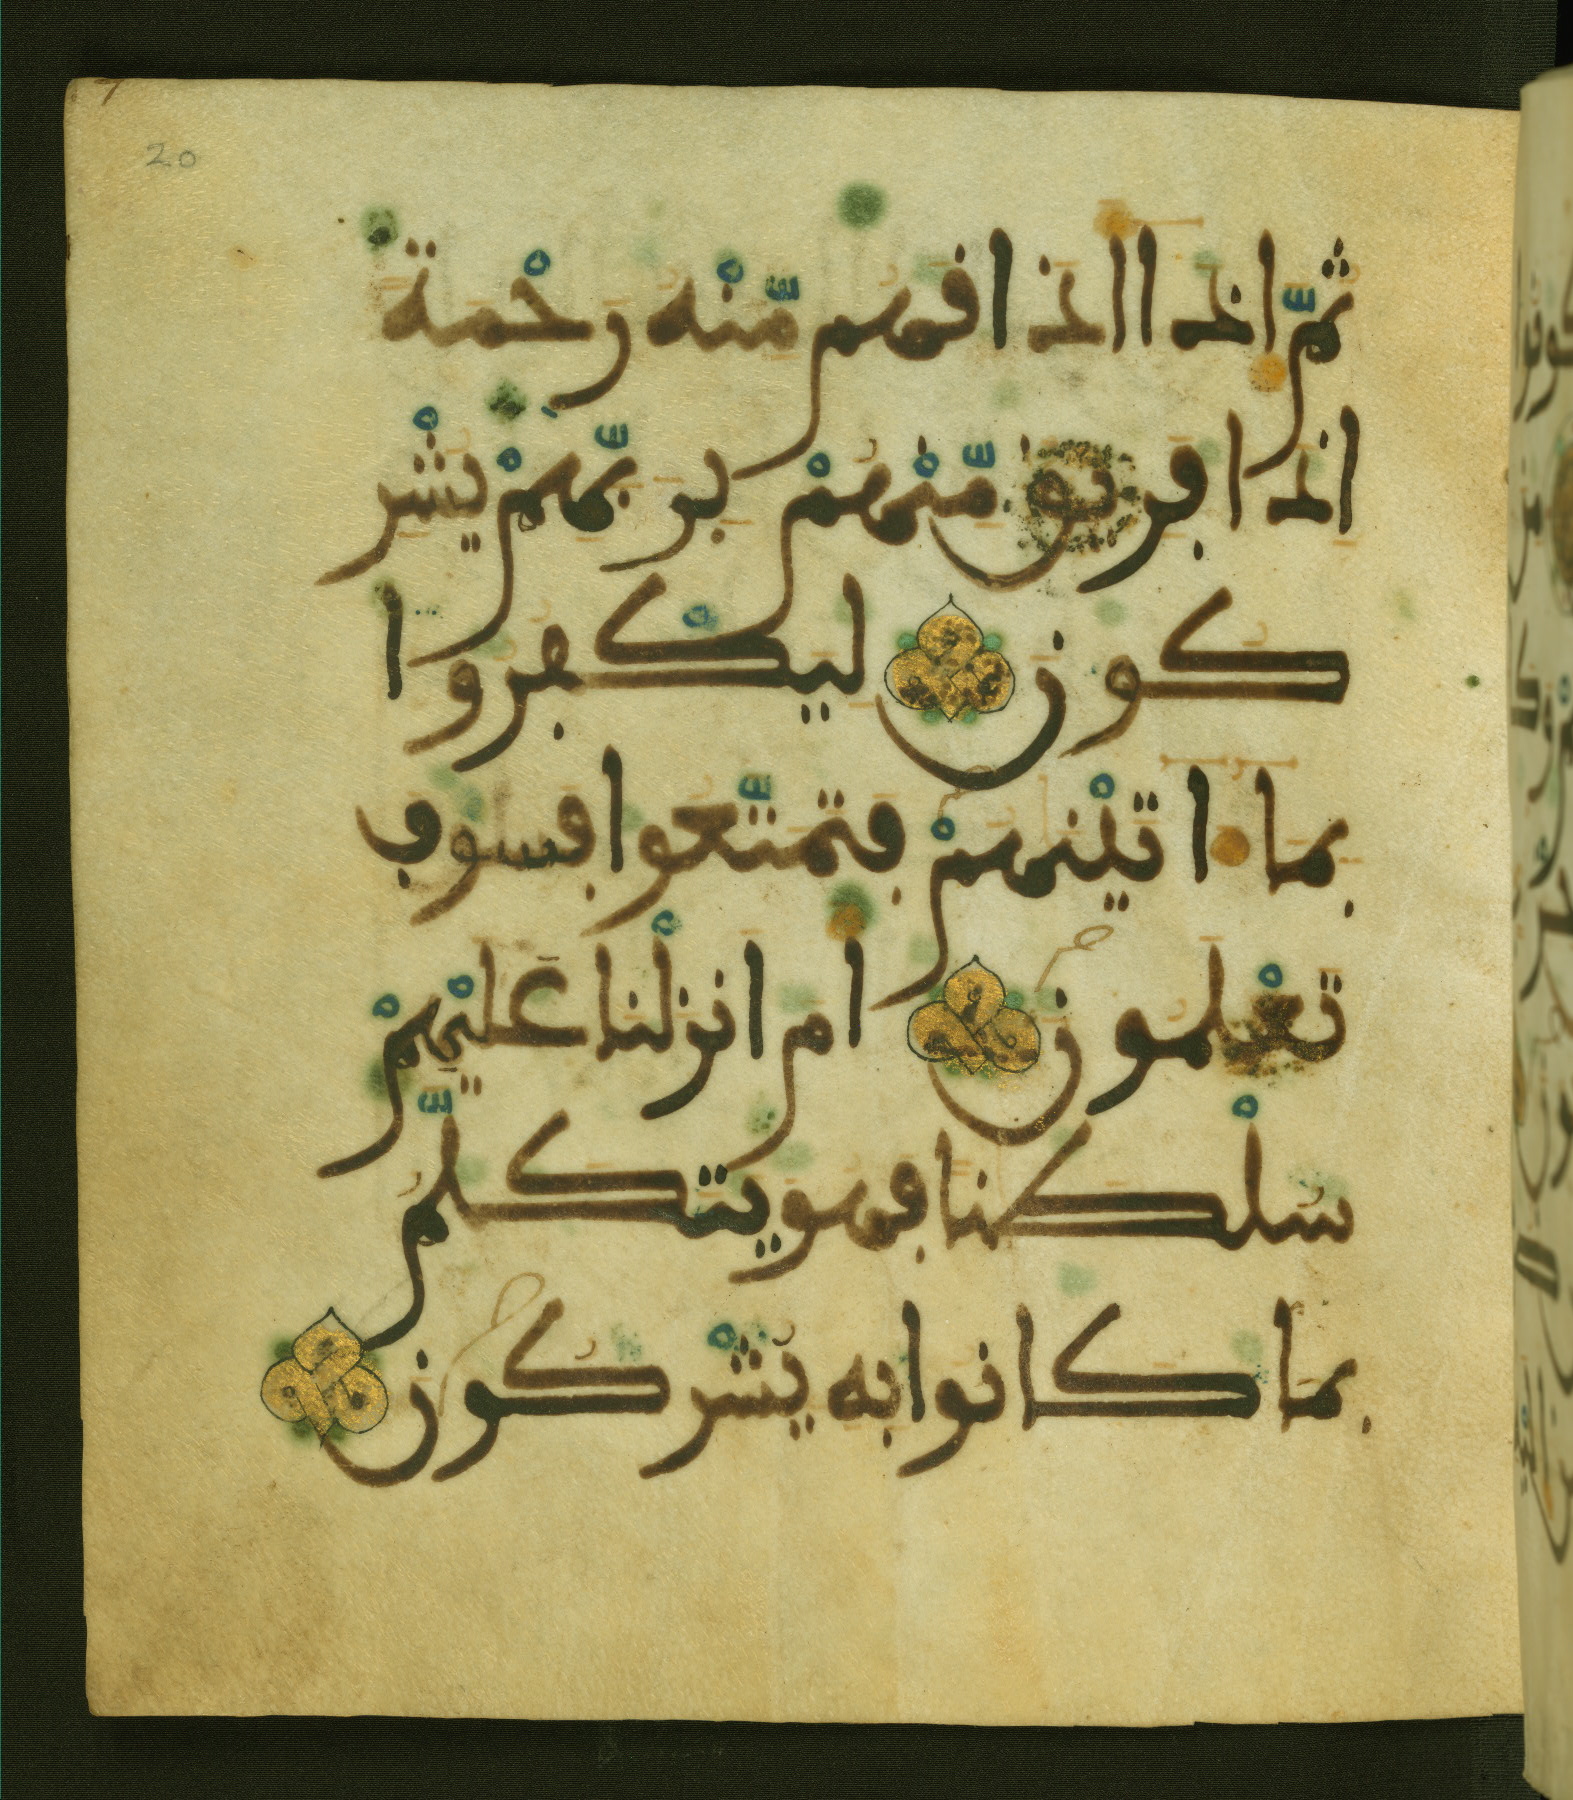 20
ثمّ اذا اذافهم مّنْه رحْمة
اذا فريق مّنْهمْ بربّهمْ يشْر
كون ليكْفروا
بما اتينهمْ فتمتّعوا فسوف
تعْلمون ام انزلْنا عليْهمْ
سلْطنا فهو يتكلّم
بما كانوا به يشْركون